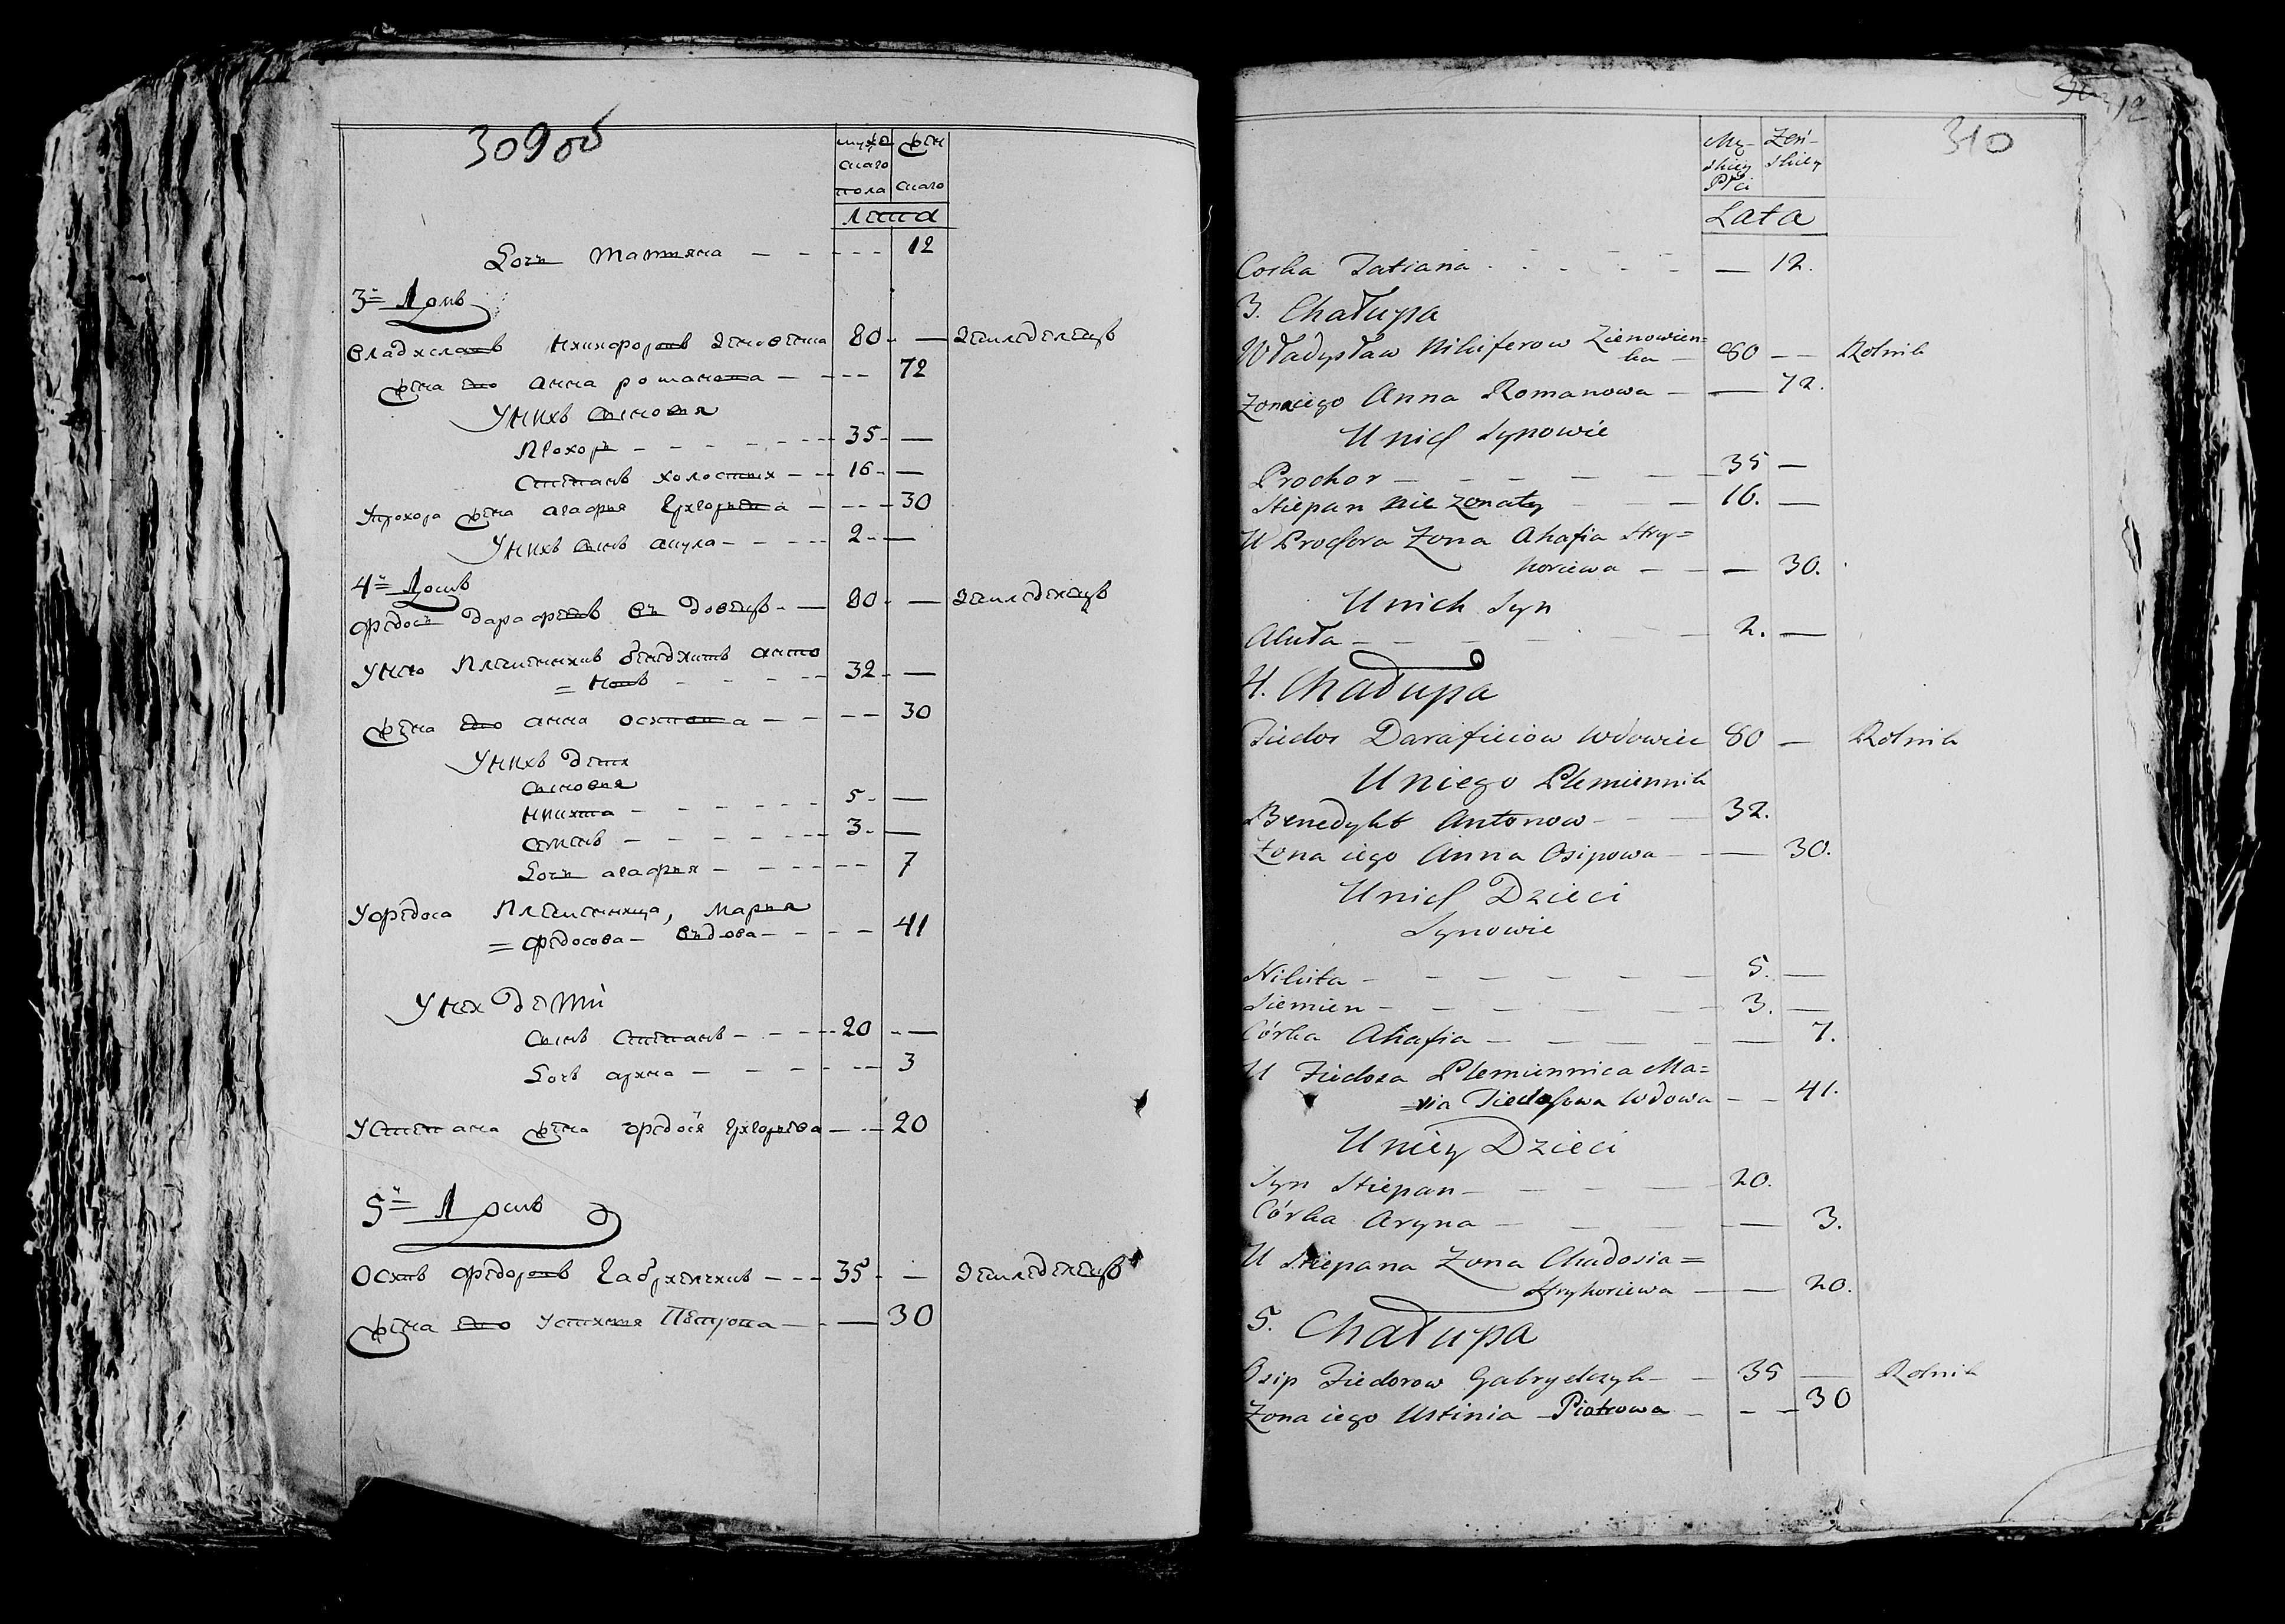 309об
мужескаго пола
женскаго
Лета
Дочь Татяна - - - - - 12
3й Домъ
Владиславъ Никифоровъ Зеновенка 80 - — Земледелецъ
жена его анна романова - - - - 72
У нихъ сыновя
Прохоръ - - - - - - - 35 - —
Степанъ холостых - - - 16 - —
У прохора жена агафья Григорьева - - - - 30
У нихъ сынъ акула - - - - - 2 - —
4й Домъ
Федосъ дарафеевъ въдовецъ - — 80 - — Земледелецъ
У него Племянникъ бенедиктъ анто
= новъ - - - - - 32 - —
жена его анна осипова - - - - 30
У нихъ дети
сыновя
никита - - - - - - - 5 - —
семенъ - - - - - - - 3 - —
Дочь агафья - - - - - 7
У федоса Племянница, Марья
= федосова - въдова - - - - 41
У нех дети
сынъ Степанъ - - - - - 20 - —
Дочь арина - - - - - - 3
У Степана жена федося Григорьева - - - 20
5й Домъ
Осипъ федоровъ Габриелчикъ - - - 35 - — Земледелецъ
жена его Устиня Петрова — - — 30
12
310
Mę-
skiey
Płci
Zeń-
skiey
Lata
Corka Tatiana - - - - - — 12.
3. Chałupa
Władysław Nikiferow Zienowien=
ka — 80 - - Rolnik
Zona iego Anna Romanowa — — 72.
U nich Synowie
Prochor — — — — — — 35 —
Stiepan nie zonaty - - — 16. —
U Prochora Zona Ahafia Hry=
horiewa — — — 30.
U nich Syn
Akuła — — — — — 2. —
4. Chałupa
Fiedos Darafieiow Wdowiec 80 — Rolnik
U niego Plemiennik
Benedykt Antonow - - — 32.
Zona iego Anna Osipowa — — 30.
U nich Dzieci
Synowie
Nikita — — — — — — 5. —
Siemien — — — — — — 3. —
Córka Ahafia — — — — — 7.
U Fiedosa Plemiennica Ma=
=ria Fiedosowa Wdowa - - 41.
U niey Dzieci
Syn Stiepan — — — — 20.
Córka Aryna — — — — — 3.
U Stiepana Zona Chadosia =
Hryhoriewa — — 20.
5. Chałupa
Osip Fiedorow Gabryelczyk — - 35 — Rolnik
Zona iego Ustinia Piotrowa — - - 30